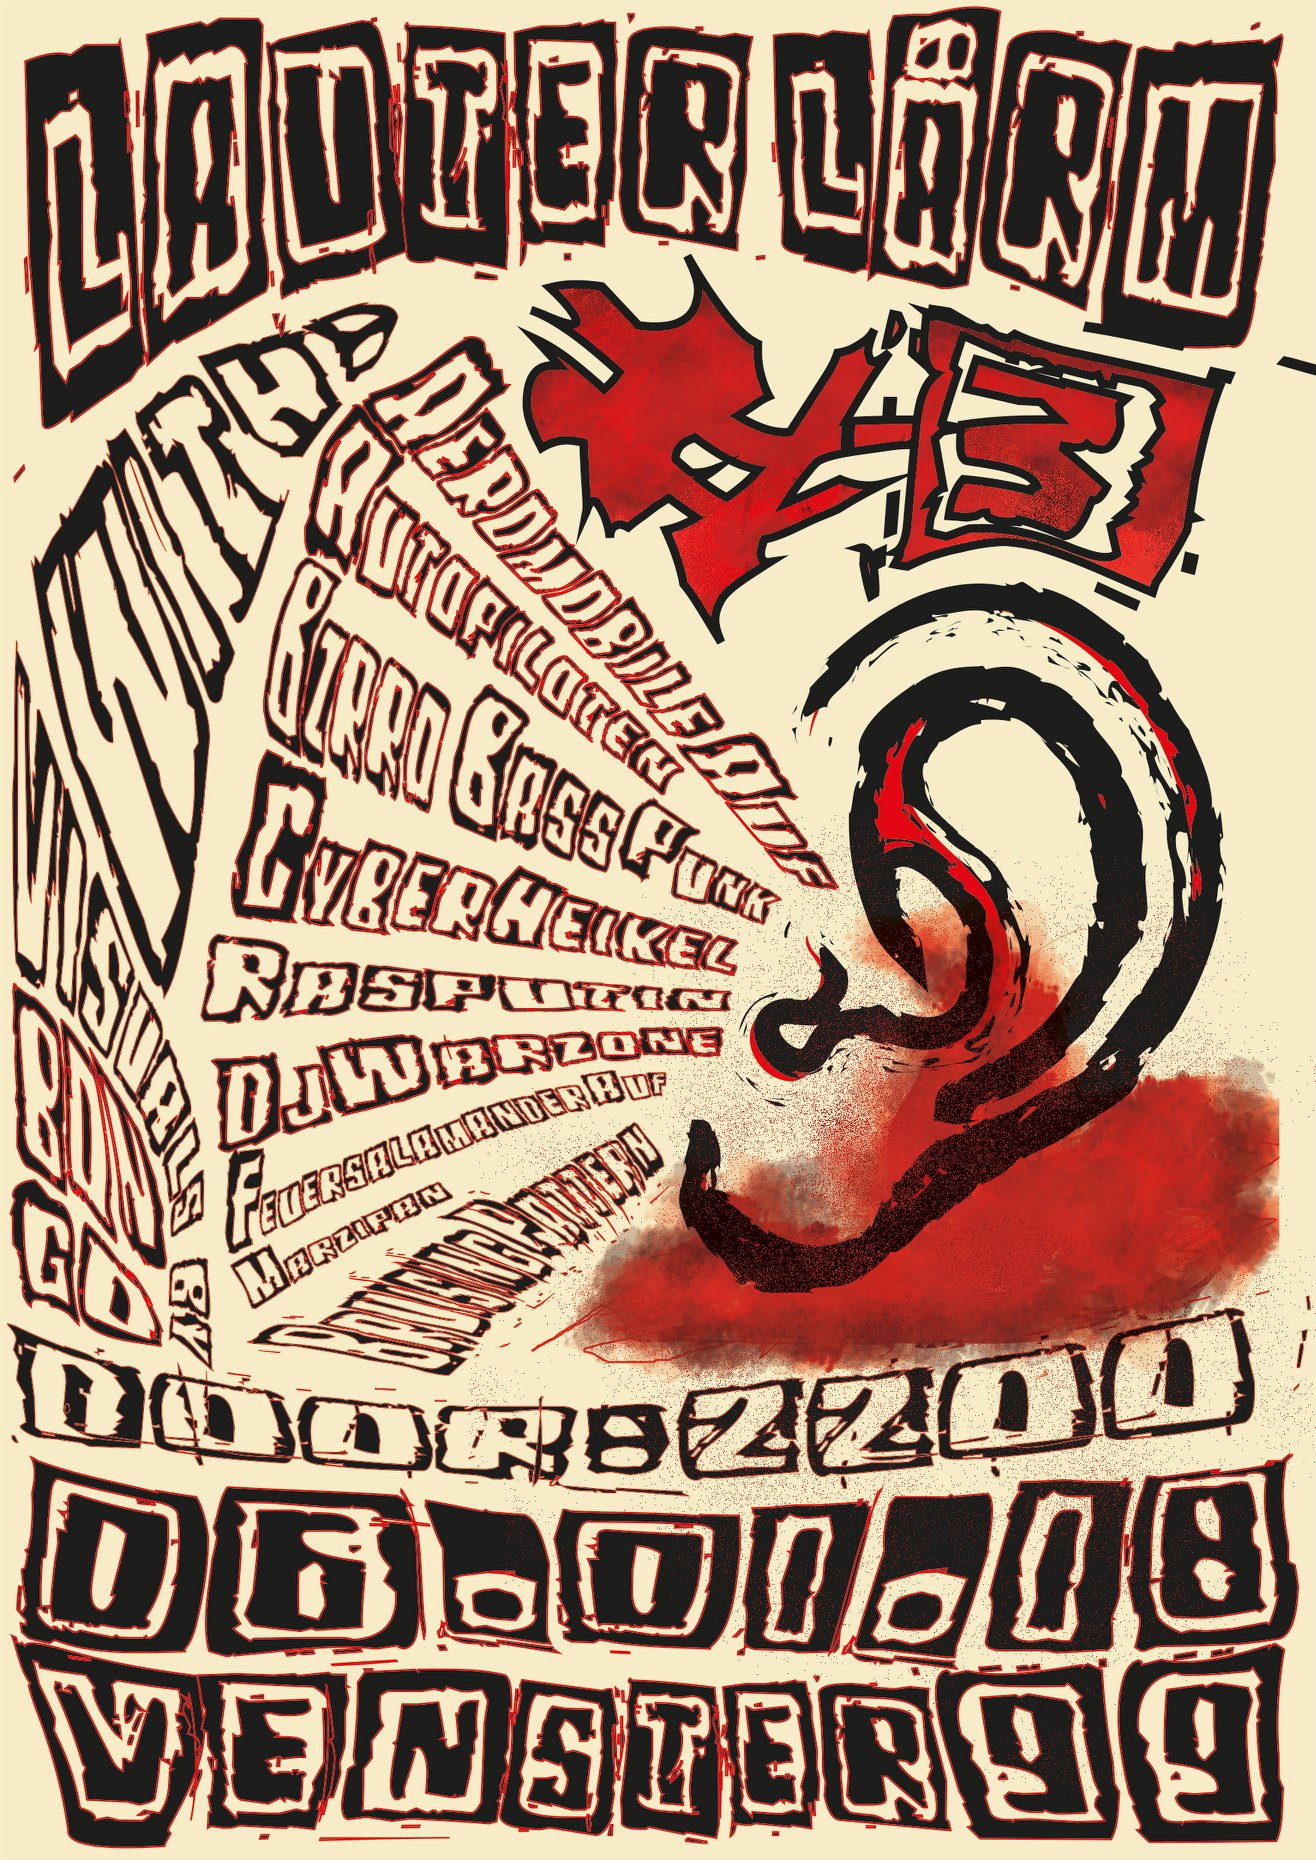 LAUTER LÄRM
#3
WITH
AEROMOBILE AUF
AUTOPILOTEN
BZRRO BASS PUNK
CYBERHEIKEL
RASPUTIN
DJ WARZONE
FEUERSALAMANDERAUF
MARZIPAN
BRUSING PATTERN
VISUALS BY
BON
GO
DOOR: 2200
06.01.18
VENSTER99